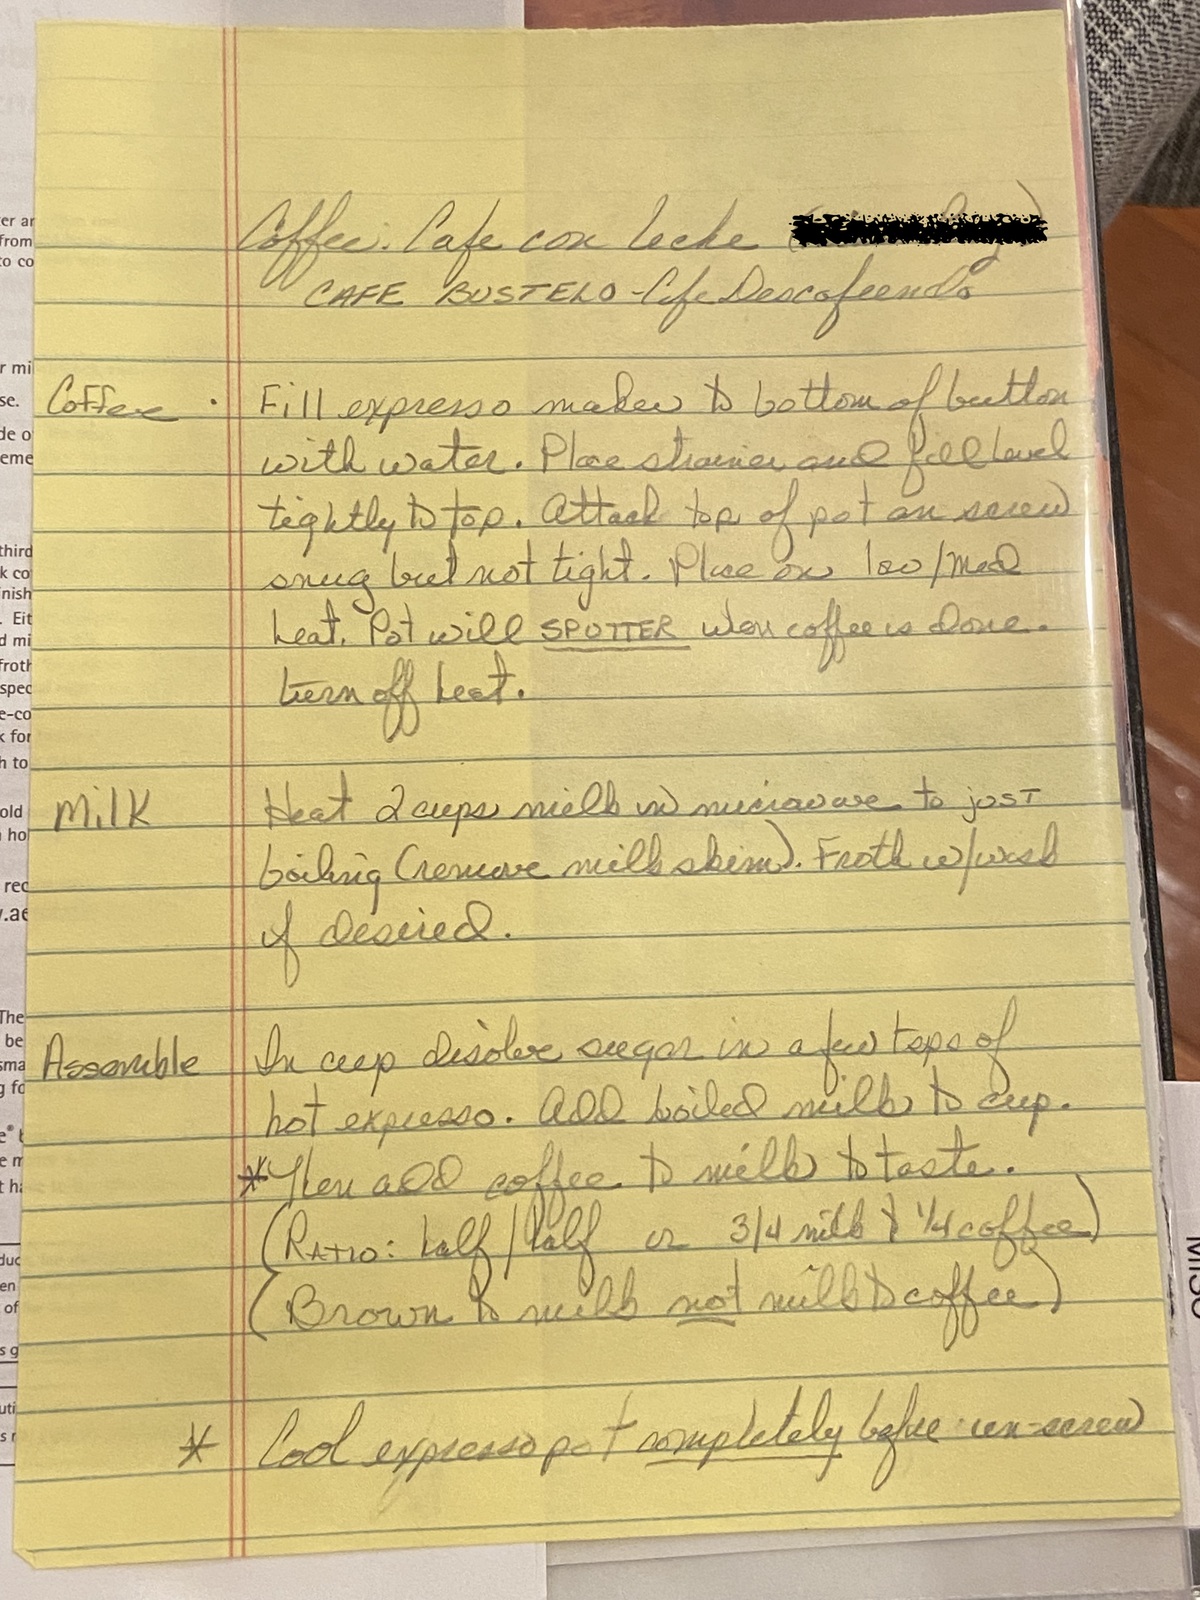 Coffee: Cafe con leche
CAFE BUSTELO - Cafe Descafeendo
Coffee · Fill expresso maker to bottom of button
with water. Place strainer and fill level
tightly to top. Attach top of pot an screw
snug but not tight. Place on low/med
heat. Pot will SPUTTER when coffee is done.
turn off heat.
Milk Heat 2 cups milk in microwave to just
boiling (remove milk skim). Froth w/wisk
if desired.
Assemble In cup disolve sugar in a few tsps of
hot expresso. Add boiled milk to cup.
* Then add coffee to milk to taste.
(RATIO: half/half or 3/4 milk & 1/4 coffee)
(Brown to milk not milk to coffee)
* Cool expresso pot completely before un-screw
er ar
from
to co
r mi
se.
de o
eme
third
k co
nish
. Eit
d mi
froth
spec
e-co
k for
h to
old
ho
rec
.ae
The
be
sma
g fo
e® t
e m
t ha
duc
en
of
s g
uti
s r